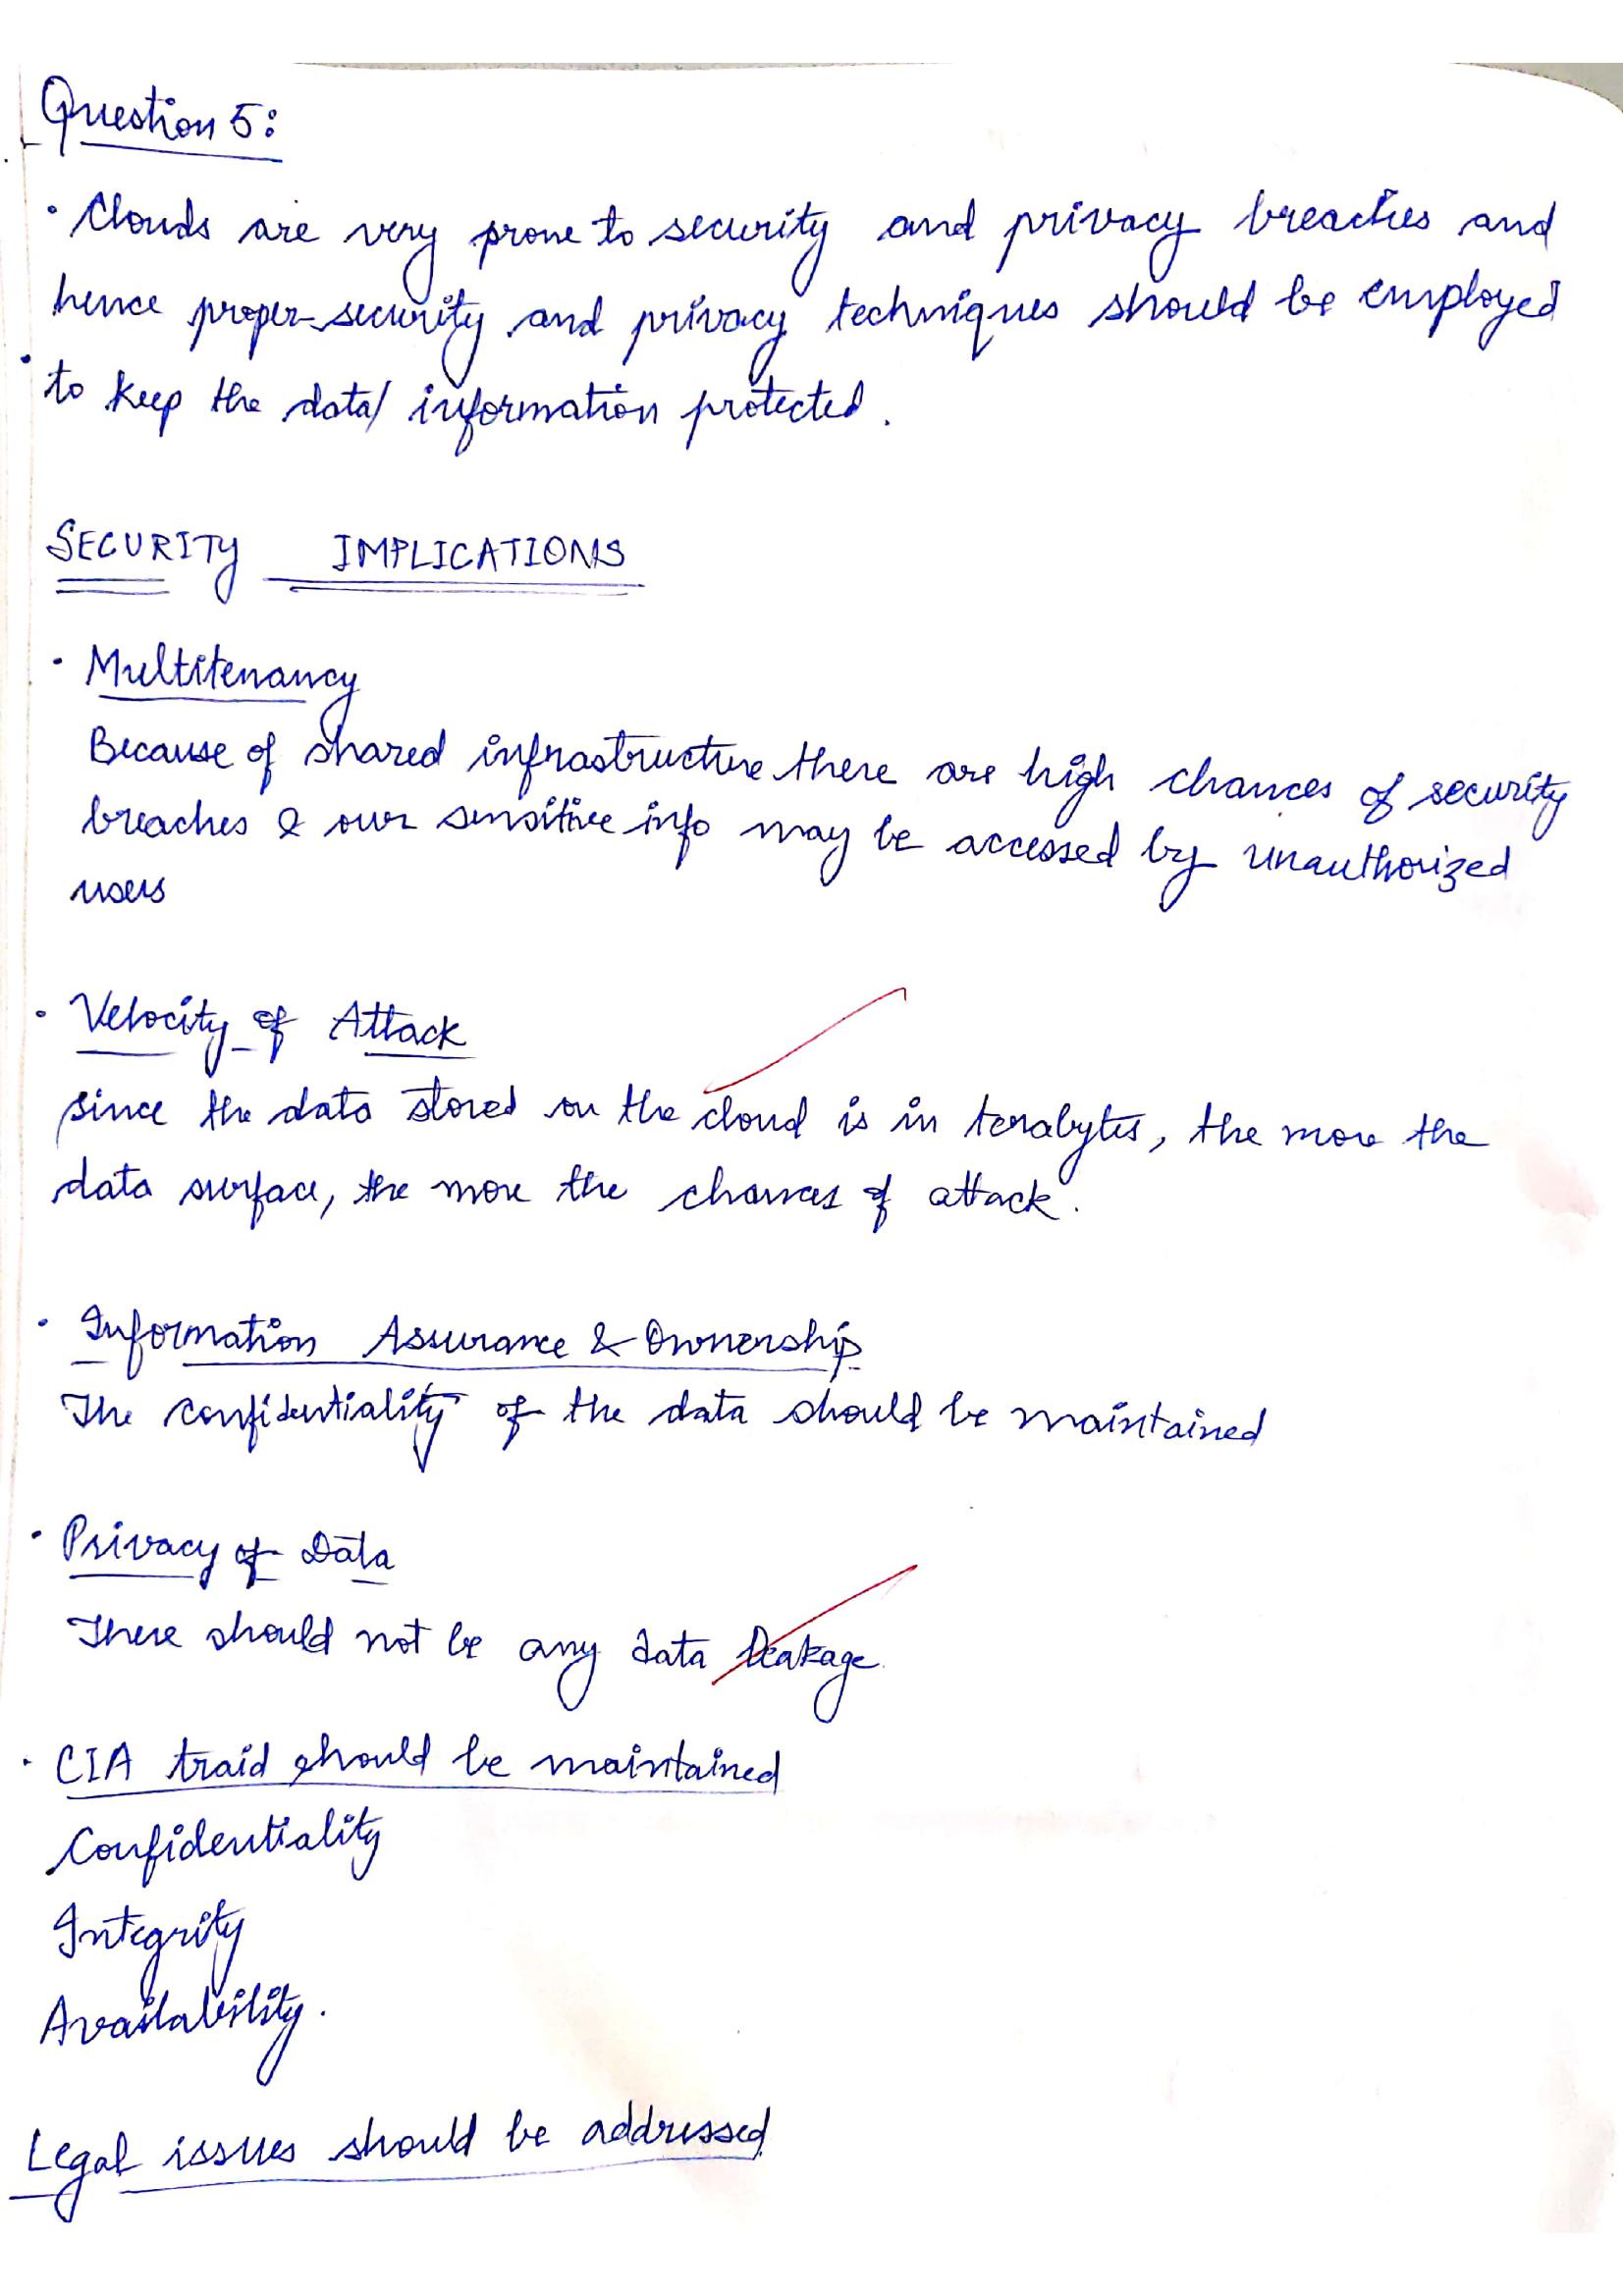 Question 5:
• Clouds are very prone to security and privacy breaches and
hence proper security and privacy techniques should be employed
to keep the data/ information protected.
SECURITY IMPLICATIONS
• Multitenancy
Because of shared infrastructure there are high chances of security
breaches & our sensitive info may be accessed by unauthorized
users
• Velocity of Attack
since the data stored on the cloud is in terabytes, the more the
data surface, the more the chances of attack.
• Information Assurance & Ownership
The confidentiality of the data should be maintained
• Privacy of Data
There should not be any data leakage.
• CIA traid should be maintained
Confidentiality
Integrity
Availability.
Legal issues should be addressed